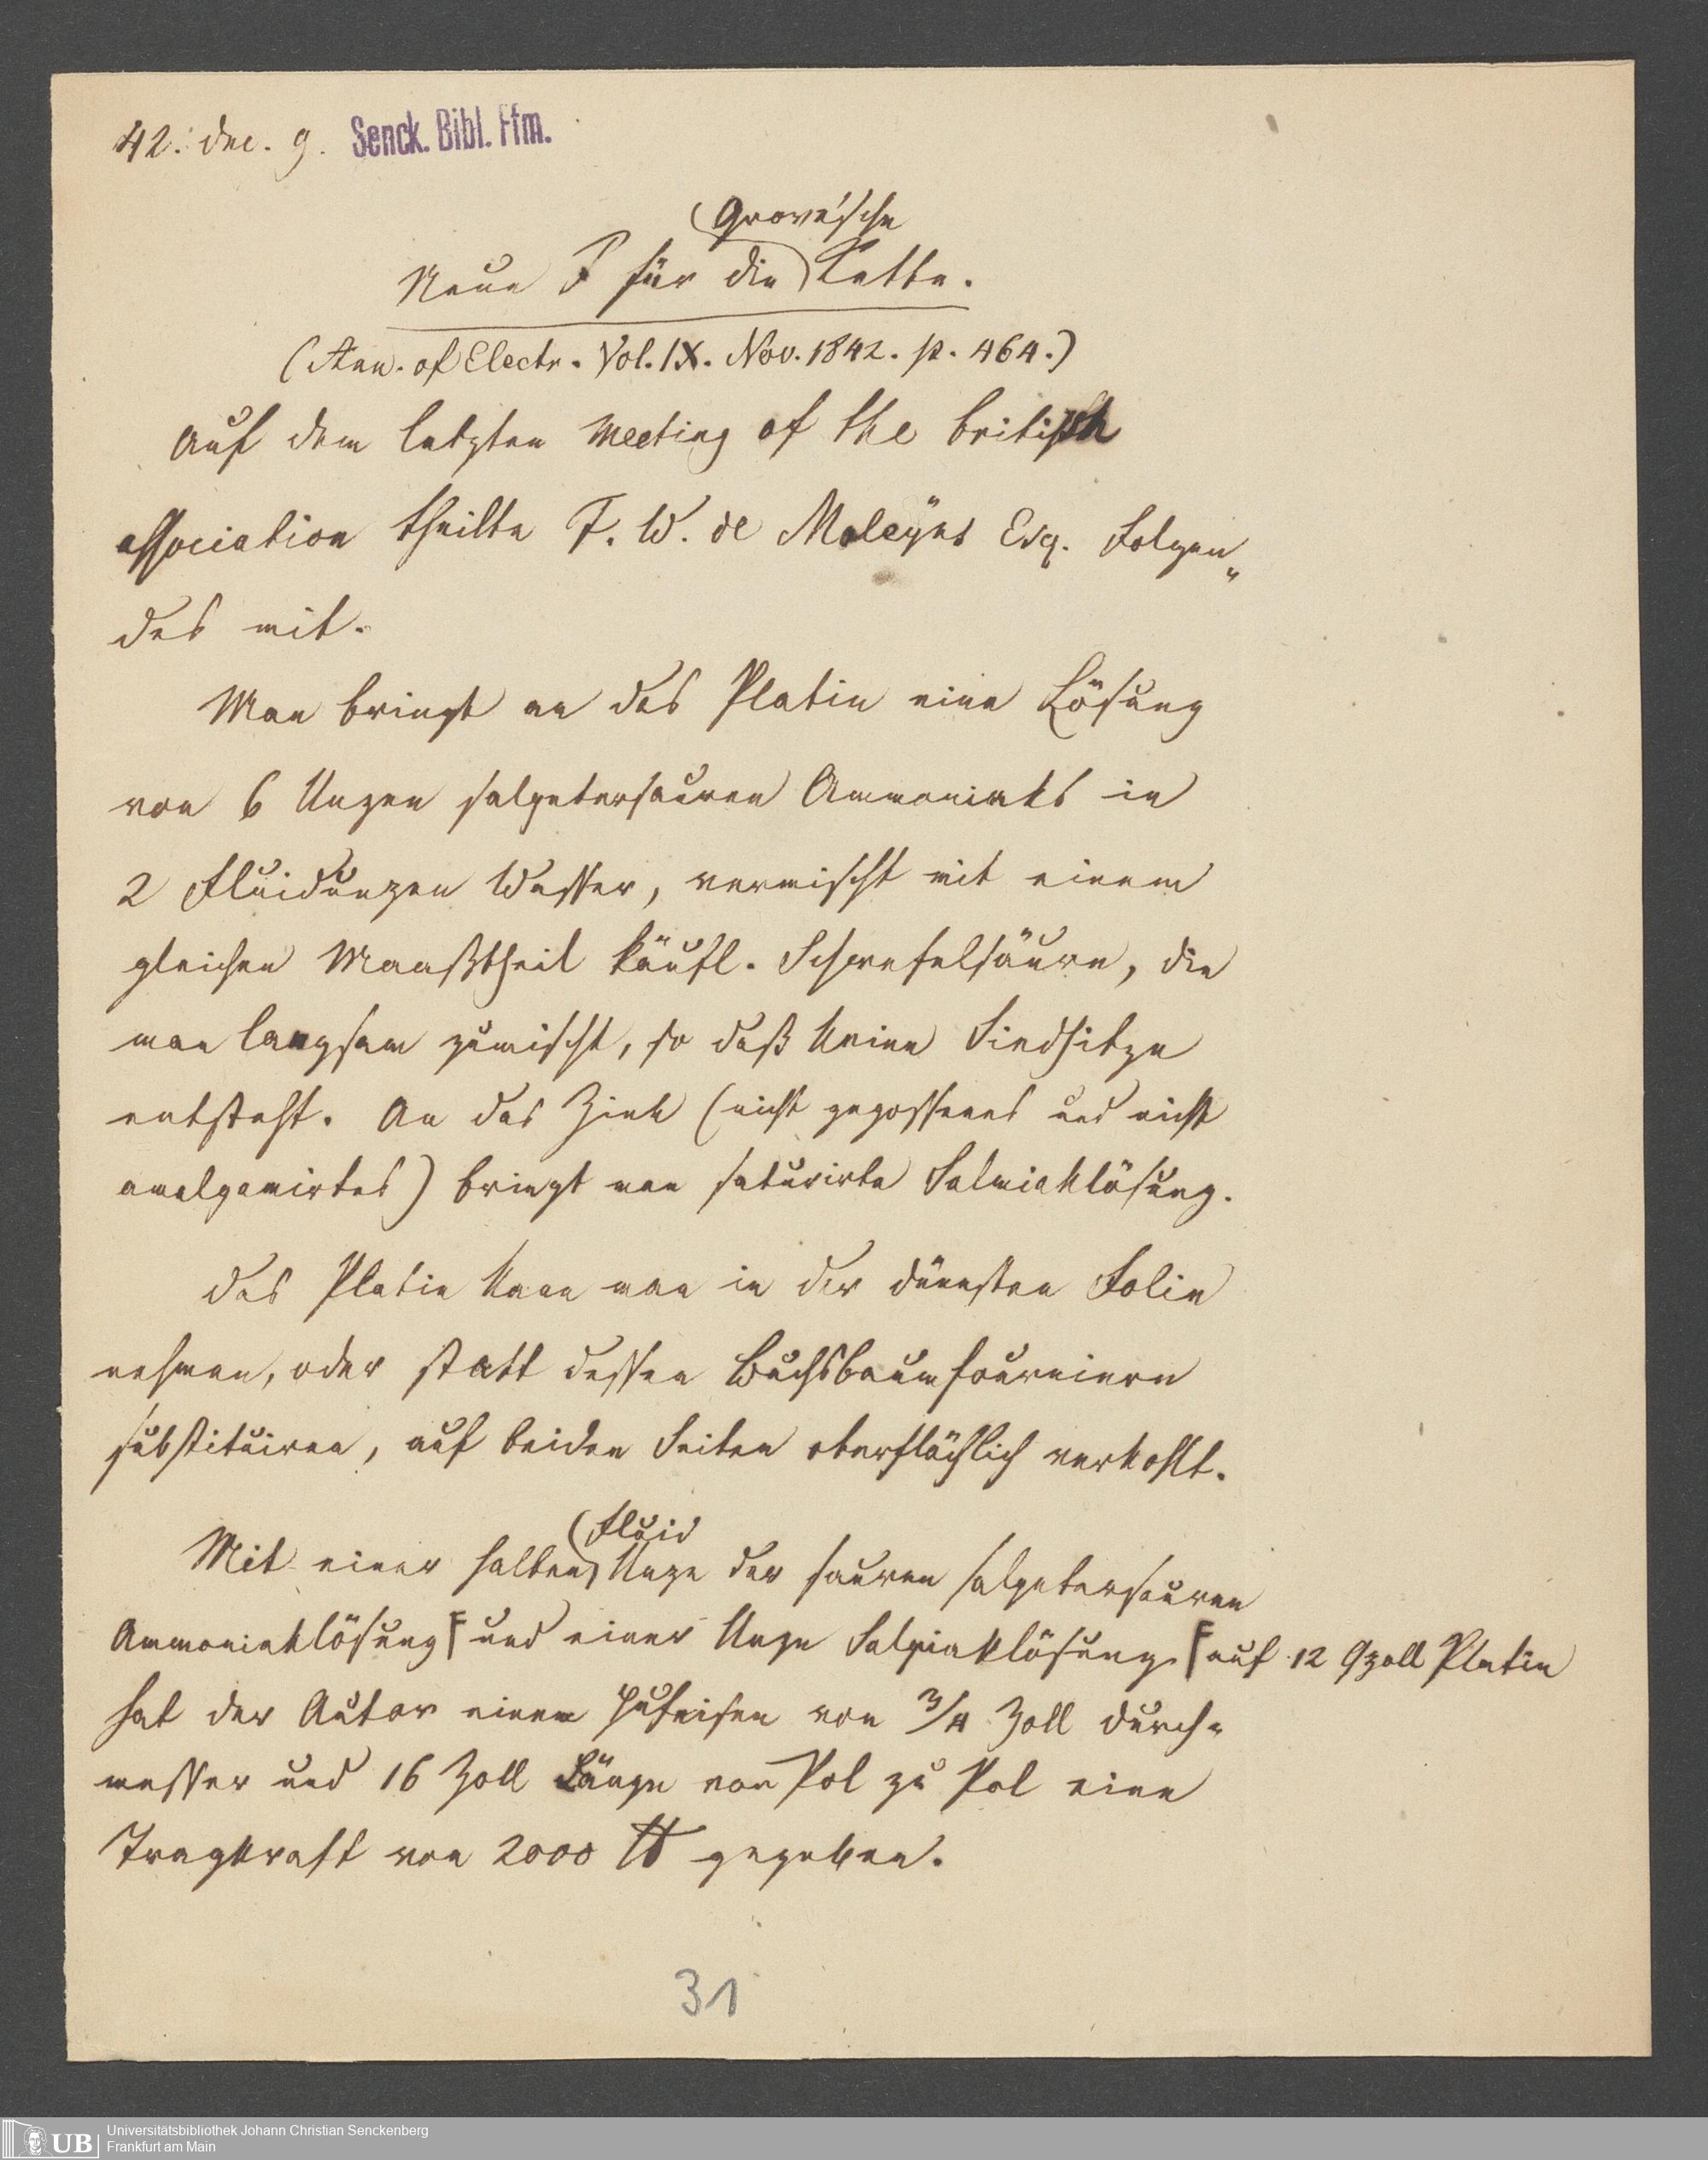 42. dec. 9. Senck. Bibl. Ffm.
Grove'sche
Neue F für die Kette.
(Ann. of Electr. Vol. IX. Nov. 1842. p. 464.)
Auf dem letzten Meeting of the british
association theilte F. W. de Moleÿns Esq. Folgen„
des mit.
Man bringt an das Platin eine Lösung
von 6 Unzen salpetersauren Ammoniaks in
2 Fluidunzen Wasser, vermischt mit einem
gleichen Maaßtheil käufl. Schwefelsäure, die
man langsam zumischt, so daß keine Siedhitze
entsteht. An das Zink (nicht gegossenes und nicht
amalgamirtes) bringt man saturirte Salmiaklösung.
Das Platin kann man in der dünnsten Folie
nehmen, oder statt dessen Buchsbaumfourniere
substituiren, auf beiden Seiten oberflächlich verkohlt.
Fluid
Mit einer halben Unze der sauren salpetersauren
Ammoniaklösung und einer Unze Salmiaklösung auf 12 Qzoll Platin
hat der Autor einem Hufeisen von 3/4 Zoll Durch-
messer und 16 Zoll Länge von Pol zu Pol eine
Tragkraft von 2000 ℔ gegeben.
31
UB Universitätsbibliothek Johann Christian Senckenberg
Frankfurt am Main